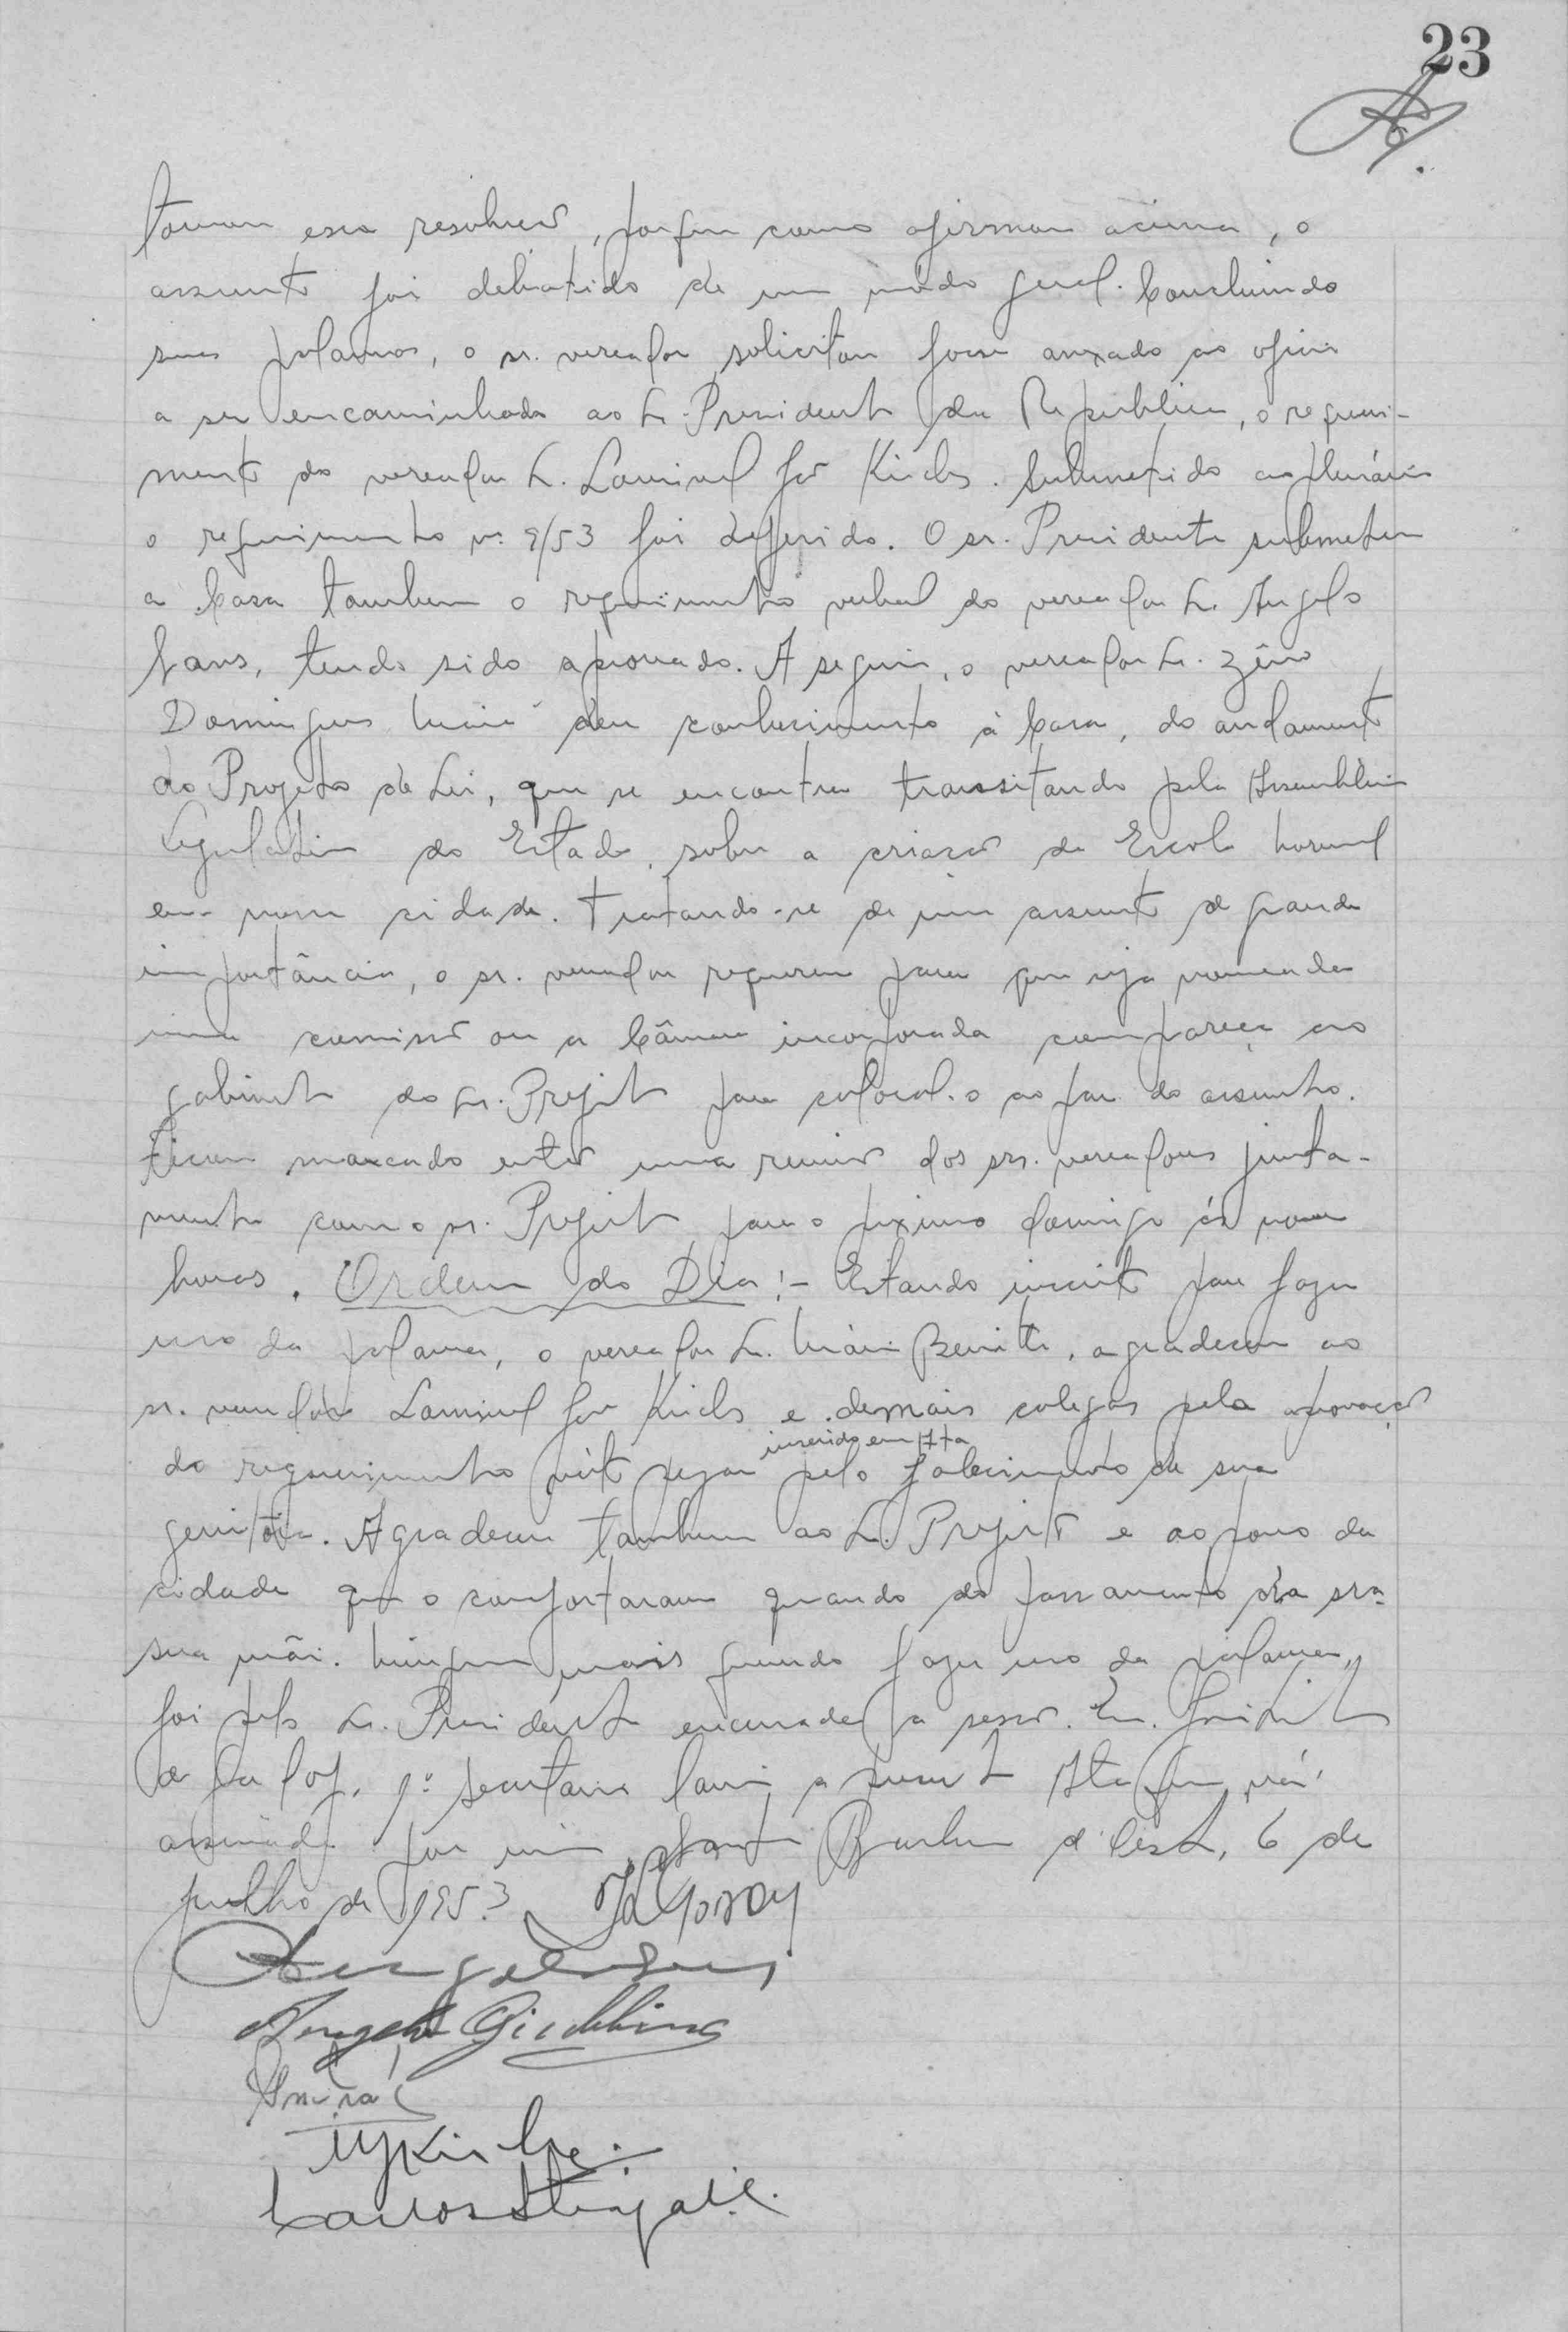 23
tomou essa resolução, porque como afirmou acima, o
assunto foi debatido de um modo geral. Concluindo
suas palavras, o sr. vereador solicitou fosse anexado ao oficio
a ser encaminhado ao Sr. Presidente da Republica, o requeri-
mento do vereador Sr. Lourival Kirche. Submetido ao plenário
o requerimento nº 9/53 foi deferido. O sr. Presidente submeteu
a Casa tambem o requerimento verbal do vereador Sr. Angelo
Sans, tendo sido aprovado. A seguir, o vereador Sr. Zêno
Domingues Maia deu conhecimento à Casa, do andamento
do Projeto de Lei, que se encontra transitando pela Assembléia
Legislativa do Estado, sobre a criação da Escola Normal
em nossa cidade. Tratando-se de um assunto de grande
importância, o sr. vereador requereu para que seja nomeada
uma comissão ou a Câmara incorporada compareça ao
gabinete do Sr. Prefeito para colocal-o ao par do assunto.
Ficou marcado então uma reunião dos srs. vereadores junta-
mente com o sr. Prefeito, para o proximo domingo ás nove
horas. Ordem do Dia:- Estando inscrito para fazer
uso da palavra, o vereador Sr. Mário Benite, agradeceu ao
sr. vereador Lourival Kirche e demais colegas pela aprovação
do requerimento voto pezar inserido em Ata pelo falecimento de sua
genitora. Agradeceu tambem ao Sr. Prefeito e ao povo da
cidade que o confortaram quando do passamento da sra
sua mãi. Ninguem mais querendo fazer uso da palavra,
foi pelo Sr. Presidente encerrada a sessão. Eu,
1º Secretario lavrei a presente Ata que vai
assinada por mim. Santa Barbara d'Oeste, 6 de
julho de 1953
Angelo Sans
Angelo Giubbina